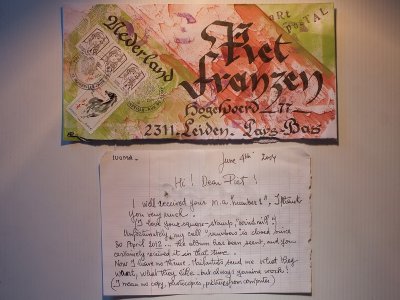 Nederland
ART POSTAL
Piet
Franzen
Hogewoerd 77
2311 - Leiden - Pays-Bas
June 4th
Hi! Dear Piet!
I well received your m.a "number 1", I thank
You very much.
(I love your square-stamp, "windmill"!)
Unfortunately, my call "numbers" is closed since
30 April 2012... the album has been sent, and you
certainly received it in that time.
Now I have no thema. Mailartists send me what they
want, what they like - but always genuine work!
(I mean no copy, photocopies, pictures from computer)